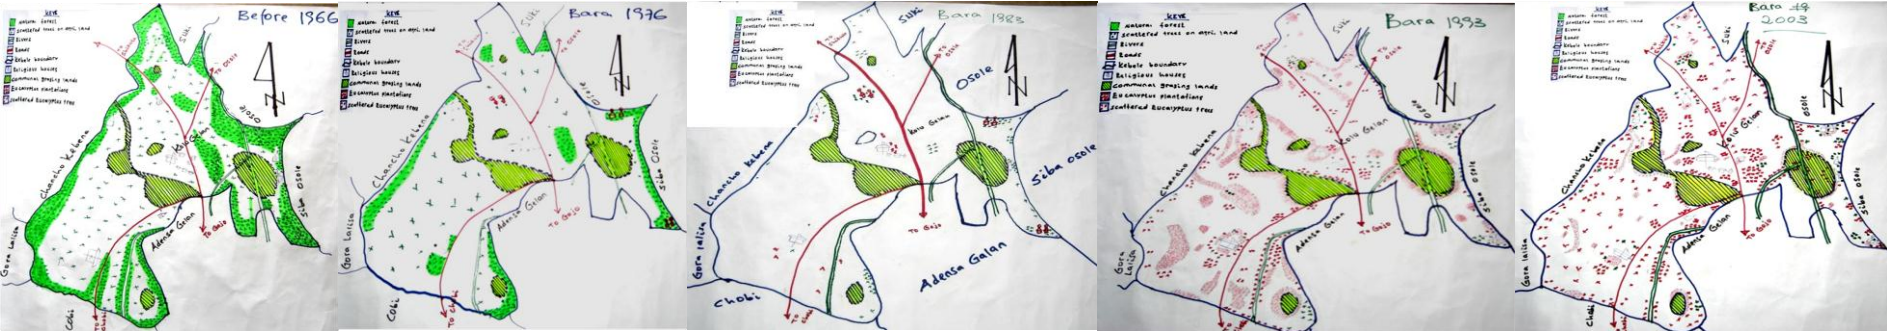 Before 1966
KEYE
Natural forest
scattered trees on agril land
Rivers
Roads
Kebele boundary
Religious houses
communal grazing lands
Eucalyptus plantations
scattered Eucalyptus tree
Suki
To Osole
Osole
Chancho Kebena
Siba Osole
Gora Lalisa
Adensa Gelan
To Gojo
Cobi
To Chobi
Bara 1976
KEYE
Natural forest
scattered trees on agril land
Rivers
Roads
Kebele boundary
Religious houses
communal grazing lands
Eucalyptus plantations
scattered Eucalyptus tree
Suki
To Osole
Osole
Chancho Kebena
Siba Osole
Gora Lalisa
Adensa Gelan
To Gojo
Cobi
To Chobi
Bara 1983
KEYE
Natural forest
scattered trees on agril land
Rivers
Roads
Kebele boundary
Religious houses
communal grazing lands
Eucalyptus plantations
scattered Eucalyptus tree
Suki
To Osole
Osole
Kolu Gelan
Chancho Kebena
Siba Osole
Gora lalisa
To Gojo
Adensa Galan
Chobi
Bara 1993
KEYE
Natural forest
scattered trees on agril land
Rivers
Roads
Kebele boundary
Religious houses
communal grazing lands
Eucalyptus plantations
scattered Eucalyptus tree
Suki
To Osole
Osole
Kolu Gelan
Chancho Kebena
Siba Osole
Gora Lalisa
Adensa Gelan
To Gojo
Bara
2003
KEYE
Natural forest
scattered trees on agril land
Rivers
Roads
Kebele boundary
Religious houses
communal grazing lands
Eucalyptus plantations
scattered Eucalyptus tree
Suki
To Osole
Osole
Kolu Gelan
Chancho Kebena
Siba Osole
Gora lalisa
Adensa Gelan
To Gojo
Chobi